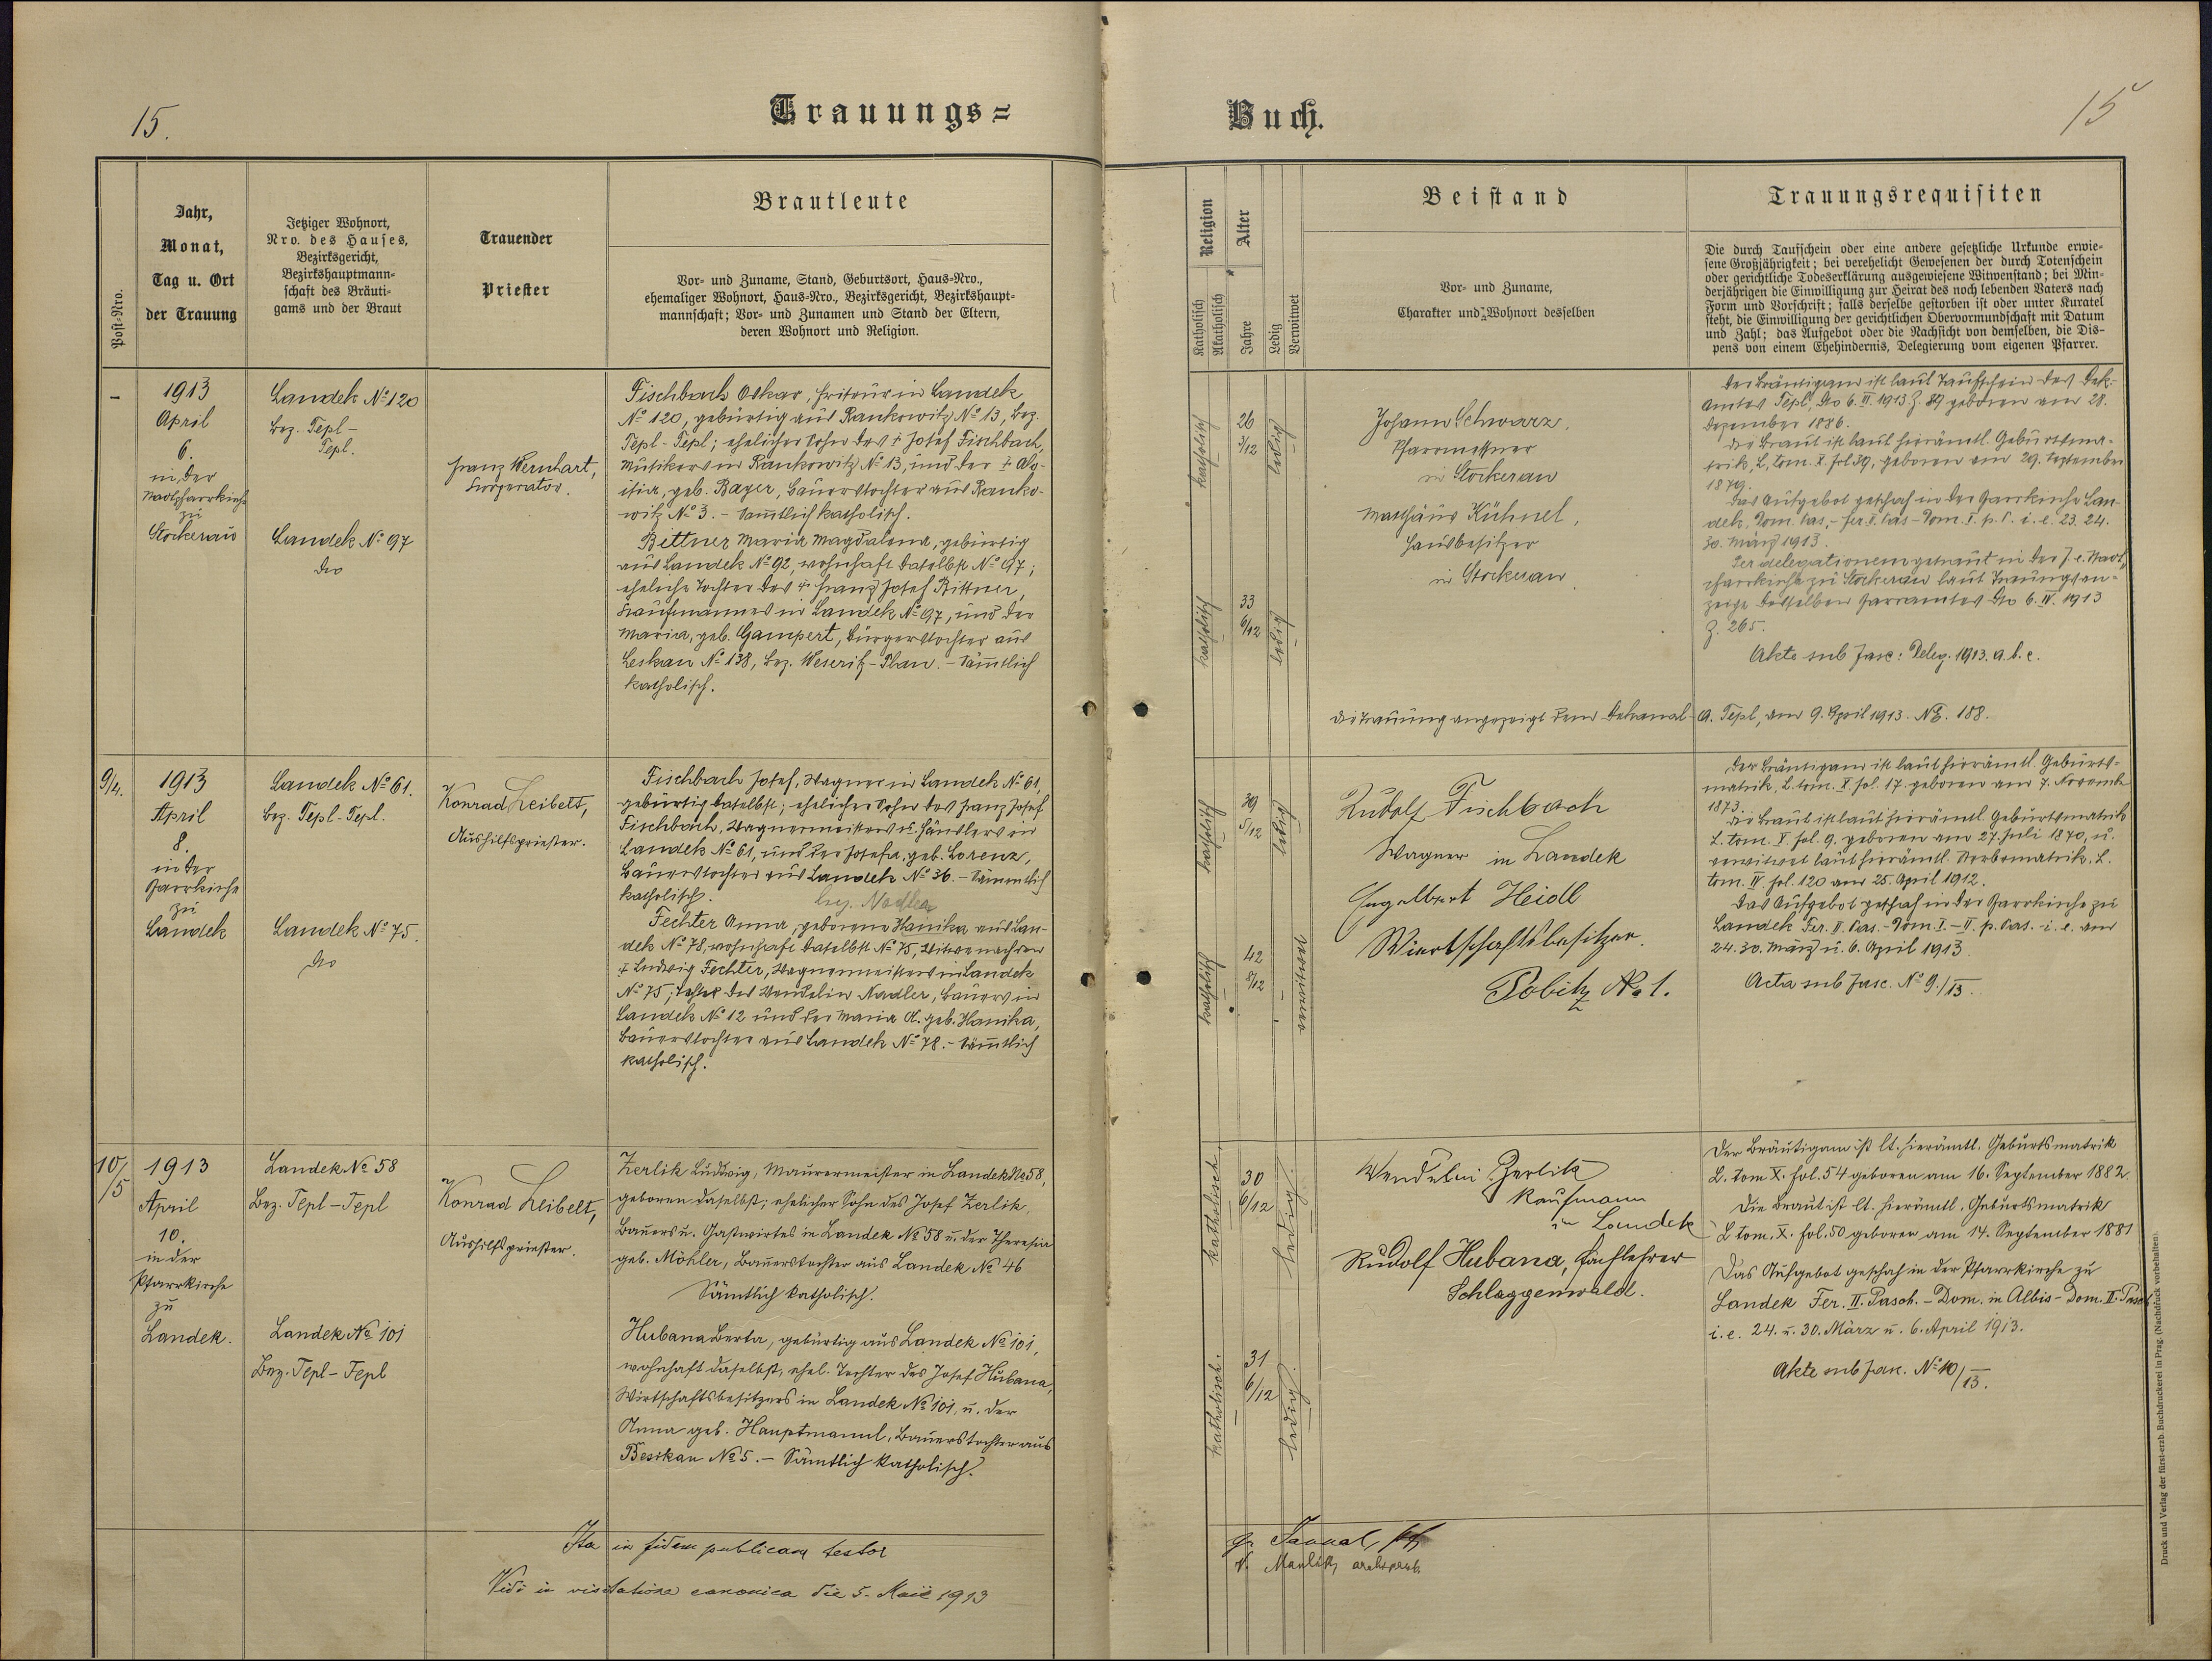 15.
Trauungs=
Buch.
15
Post-Nro.
Jahr,
Monat,
Tag u. Ort
der Trauung
Jetziger Wohnort,
Nro. des Hauses,
Bezirksgericht,
Bezirkshauptmann-
schaft des Bräuti-
gams und der Braut
Trauender
Priester
Brautleute
Vor- und Zuname, Stand, Geburtsort, Haus-Nro.,
ehemaliger Wohnort, Haus-Nro., Bezirksgericht, Bezirkshaupt-
mannschaft; Vor- und Zunamen und Stand der Eltern,
deren Wohnort und Religion.
Religion
Katholisch
Akatholisch
Alter
Jahre
Ledig
Verwitwet
Beistand
Vor- und Zuname,
Charakter und Wohnort desselben
Trauungsrequisiten
Die durch Taufschein oder eine andere gesetzliche Urkunde erwie-
sene Großjährigkeit; bei verehelicht Gewesenen der durch Totenschein
oder gerichtliche Todeserklärung ausgewiesene Witwenstand; bei Min-
derjährigen die Einwilligung zur Heirat des noch lebenden Vaters nach
Form und Vorschrift; falls derselbe gestorben ist oder unter Kuratel
steht, die Einwilligung der gerichtlichen Obervormundschaft mit Datum
und Zahl; das Aufgebot oder die Nachsicht von demselben, die Dis-
pens von einem Ehehindernis, Delegierung vom eigenen Pfarrer.
–
1913
April
6.
in der
Stadtpfarrkirche
zu
Stockerau
Landek № 120
Bez. Tepl -
Tepl.
Landek № 97
dto
Franz Wernhart,
Kooperator.
Fischbach Oskar, Friseur in Landek
№ 120, gebürtig aus Rankowitz № 13, Bez.
Tepl - Tepl; ehelicher Sohn des † Josef Fischbach,
Musikers in Rankowitz № 13, und der † Alo-
isia, geb. Bayer, Bauerstochter aus Ranko-
witz № 3. - Sämtlich katholisch.
Bettner Maria Magdalena, gebürtig
aus Landek № 92, wohnhaft daselbst № 97;
eheliche Tochter des † Franz Josef Bittner,
Kaufmannes in Landek № 97, und der
Maria, geb. Gampert, Bürgerstochter aus
Leskau № 138, Bez. Weseritz - Plan. - Sämtlich
katholisch.
katholisch
26
3/12
ledig
katholisch
33
6/12
ledig
Johann Schwarz,
Pfarrmessner
in Stockerau
Matthäus Kühnel,
Hausbesitzer
in Stockerau
Der Bräutigam ist laut Taufschein des Dek.-
Amtes Tepl, dto 6. II. 1913 Z. 89 geboren am 28.
Dezember 1886.
Die Braut ist laut hierämtl. Geburtsma-
trik, L. tom. X. fol 39, geboren am 29. September
1879.
Das Aufgebot geschah in der Pfarrkirche Lan-
dek, Dom. Pas. - fer. II. Pas - Dom. I. p. P. i. e. 23. 24.
30. März 1913.
Per delegationem getraut in der f. e. Stadt-
pfarrkirche zu Stockerau laut Trauungsan-
zeige desselben Pfarramtes dto 6. IV. 1913
Z. 265.
Akte sub Fasc: Deleg. 1913. a. b. c.
Die Trauung angezeigt dem Dekanal-A. Tepl, am 9. April 1913. NE. 188.
9/4.
1913
April
8.
in der
Pfarrkirche
zu
Landek
Landek № 61.
Bez. Tepl-Tepl.
Landek № 75.
dto
Konrad Leibelt,
Aushilfspriester.
Fischbach Josef, Wagner in Landek № 61,
gebürtig daselbst; ehelicher Sohn des Franz Josef
Fischbach, Wagnermeisters u. Häuslers in
Landek № 61, und der Josefa, geb. Lorenz,
Bauerstochter aus Landek № 36. - Sämmtlich
katholisch.
Nadler
Fechter Anna, geborene Hanika aus Lan-
dek № 78, wohnhaft daselbst № 75, Witwe nach dem
† Ludwig Fechter, Wagnermeisters in Landek
№ 75; Tochter des Wendelin Nadler, Bauers in
Landek № 12 und der Maria A. geb. Hanika,
Bauerstochter aus Landek № 78. - Sämtlich
katholisch.
katholisch
39
5/12
ledig
katholisch
42
8/12
verwitwet
Rudolf Fischbach
Wagner in Landek
Engelbert Heidl
Wirtschaftsbesitzer
Pobitz No 1.
Der Bräutigam ist laut hierämtl. Geburts-
matrik, L. tom. X fol. 17. geboren am 7. Novemb.
1873
Die Braut ist laut hierämtl. Geburtsmatrik
L. tom. X. fol. 9. geboren am 27. Juli 1870, u.
verwitwet laut hierämtl. Sterbematrik, L.
tom. IV fol. 120 am 25. April 1912.
Das Aufgebot geschah in der Pfarrkirche zu
Landek Fer. II. Pas. - Dom. I. - II. p. Pas. - i. e. am
24. 30. März u. 6. April 1913.
Acta sub Fasc. № 9./13.
10/5
1913
April
10.
in der
Pfarrkirche
zu
Landek.
Landek № 58
Bez. Tepl - Tepl
Landek № 101
Bez. Tepl - Tepl
Konrad Leibelt,
Aushilfspriester.
Zerlik Ludwig, Maurermeister in Landek No 58,
geboren daselbst; ehelicher Sohn des Josef Zerlik,
Bauers u. Gastwirtes in Landek № 58 u. der Theresia
geb. Möhler, Bauerstochter aus Landek № 46
Sämtlich katholisch.
Hubana Berta, gebürtig aus Landek № 101,
wohnhaft daselbst, ehel. Tochter des Josef Hubana,
Wirtschaftsbesitzers in Landek № 101, u. der
Anna geb. Hauptmannl, Bauerstochter aus
Besikau № 5. - Sämtlich katholisch.
katholisch.
30
6/12
ledig.
katholisch.
31
6/12
ledig.
Wendelin Zerlik
Kaufmann
in Landek
Rudolf Hubana, Fachlehrer
Schlaggenwald.
Der Bräutigam ist lt. hierämtl. Geburtsmatrik
L. tom X. fol. 54 geboren am 16. September 1882
Die Braut ist lt. hierämtl. Geburtsmatrik
L tom. X. fol. 50 geboren am 14. September 1881
Das Aufgebot geschah in der Pfarrkirche zu
Landek Fer. II. Pasch. - Dom. in Albis - Dom. II. Pasch
i. e. 24. u. 30. März u. 6. April 1913.
Akte sub Fasc. № 10/13.
Ita in fidem publicam testor
Vidi in visitatione canonica die 5. Maii 1913
Druck und Verlag der fürst-erzb. Buchdruckerei in Prag. (Nachdruck vorbehalten).